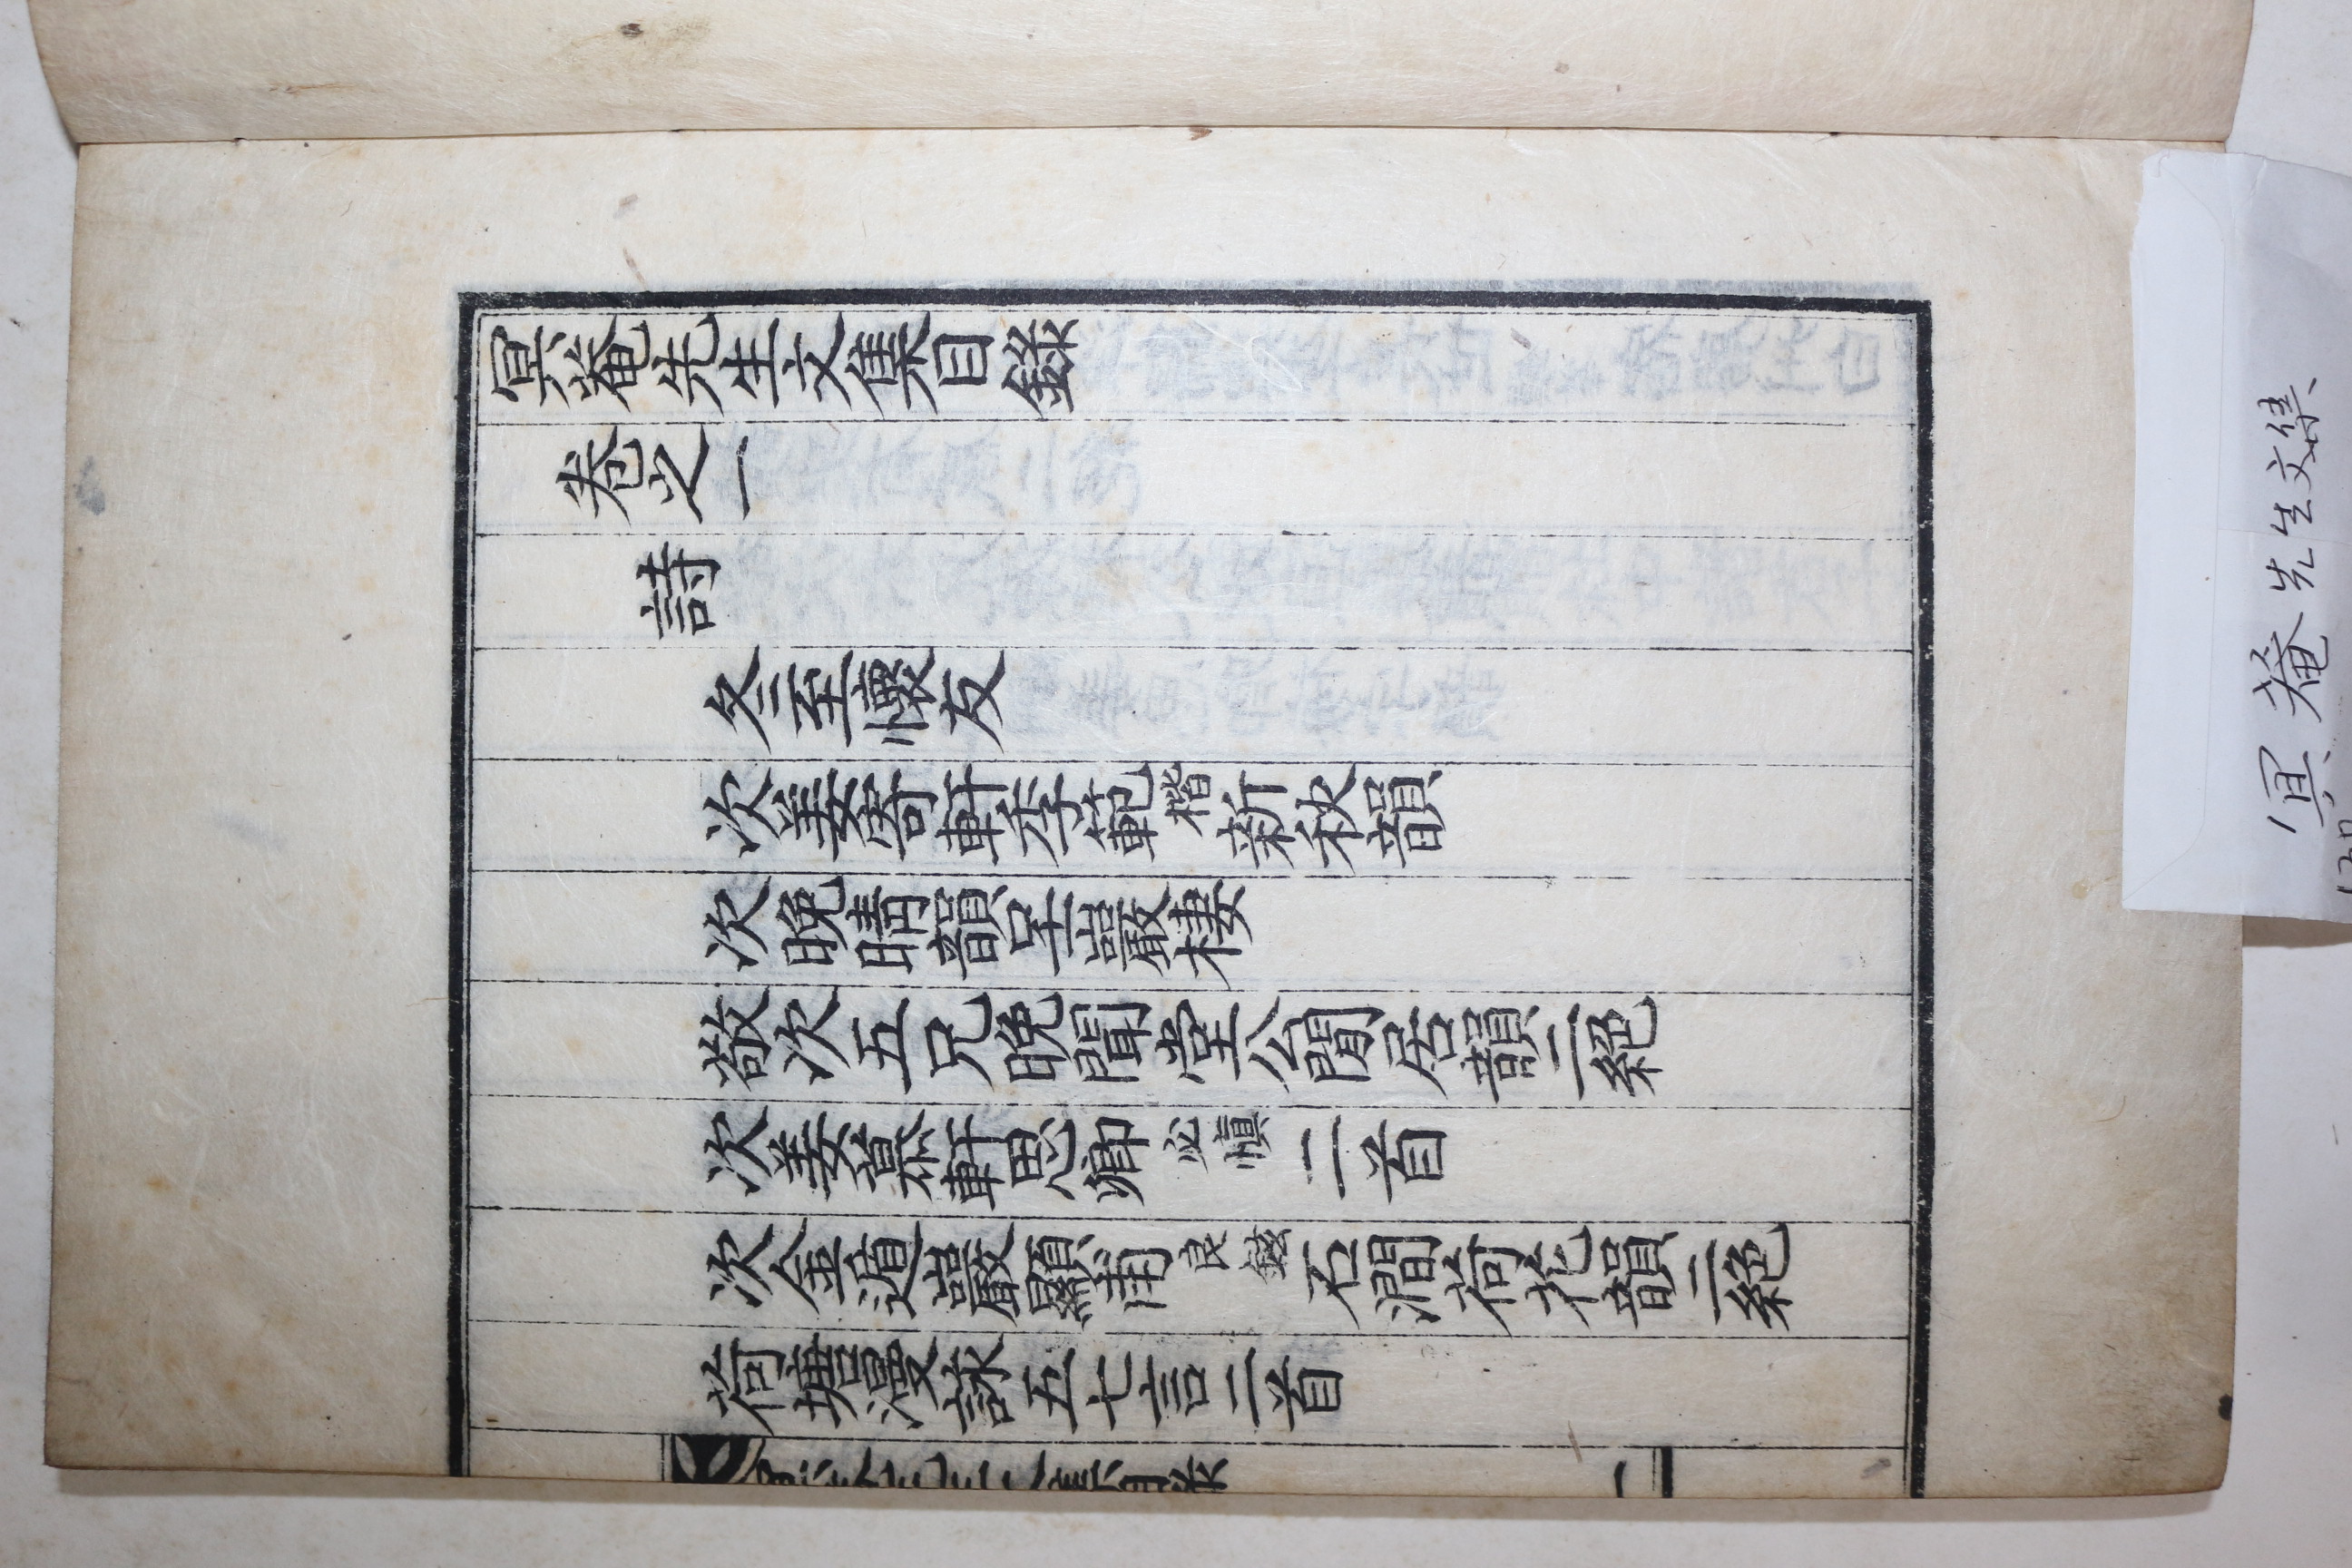 冥菴先生文集目錄
卷之一
詩
冬至懷友
次姜寄軒季範楷新秋韻
次晚晴韻呈巖棲
敬次五兄晚聞堂公閒居韻二絕
次姜慕軒思卿必愼二首
次金遁巖顯甫良鉉石澗荷花韻二絕
荷塘漫詠五七言二首
一
冥菴先生文集